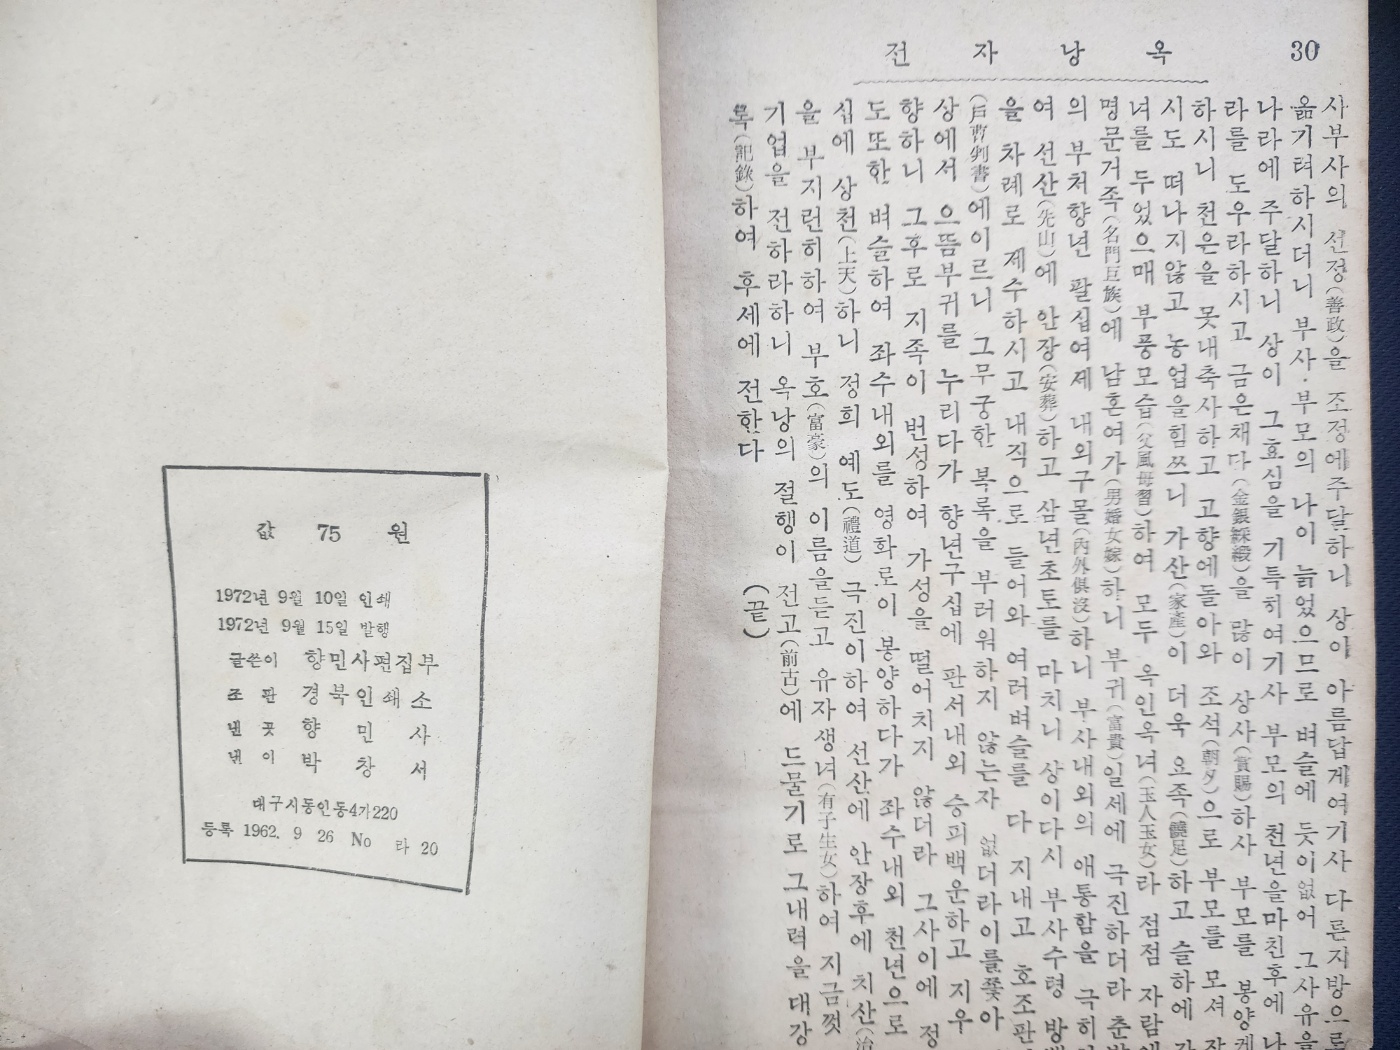 30
옥낭자전
사부사의 선정(善政)을 조정에주달하니 상이 아름답게여기사 다른지방으로
옮기려하시더니 부사·부모의 나이 늙었으므로 벼슬에 듯이없어 그사유을
나라에 주달하니 상이 그효심을 기특히여기사 부모의 천년을마친후에 나
라를 도우라하시고 금은채다(金銀綵緞)을 많이 상사(賞賜)하사 부모를 봉양케
하시니 천은을 못내축사하고 고향에돌아와 조석(朝夕)으로 부모를 모셔
시도 떠나지않고 농업을힘쓰니 가산(家產)이 더욱 요족(饒足)하고 슬하에
녀를 두었으매 부풍모습(父風母習)하여 모두 옥인옥녀(玉人玉女)라 점점 자람에
명문거족(名門巨族)에 남혼여가(男婚女嫁)하니 부귀(富貴)일세에 극진하더라 춘
의 부처향년 팔십여세 내외구몰(內外俱沒)하니 부사내외의 애통함을 극히
여 선산(先山)에 안장(安葬)하고 삼년초토를 마치니 상이다시 부사수령 방백
을 차례로 제수하시고 내직으로 들어와 여러벼슬를 다 지내고 호조판
(戶曹判書)에이르니 그무궁한 복록을 부러워하지 않는자 없더라이를쫓아
상에서 으뜸부귀를 누리다가 향년구십에 판서내외 승피백운하고 지우
향하니 그후로 지족이 번성하여 가성을 떨어치지 않더라 그사이에 정
도 또한 벼슬하여 좌수내외를 영화로이 봉양하다가 좌수내외 천년으로
십에 상천(上天)하니 정희 예도(禮道) 극진이하여 선산에 안장후에 치산(治
을 부지런히하여 부호(富豪)의 이름을듣고 유자생녀(有子生女)하여 지금껏
기업을 전하라하니 옥낭의 절행이 전고(前古)에 드물기로 그내력을 대강
록(記錄)하여 후세에 전한다
(끝)
값 75 원
1972년 9월 10일 인쇄
1972년 9월 15일 발행
글쓴이 향민사편집부
조 판 경북인쇄소
낸 곳 향 민 사
낸 이 박 창 서
대구시동인동4가220
등록 1962. 9 26 No 라 20